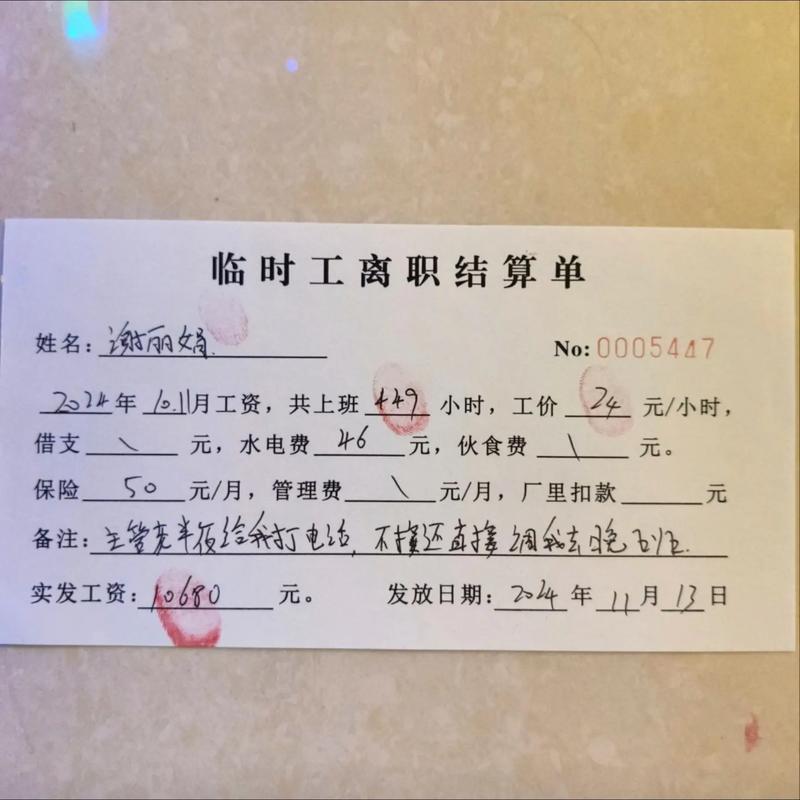 临时工离职结算单
姓名：谢丽娟 No: 0005447
2024年10.11月工资，共上班449小时，工价24元/小时，
借支\元，水电费46元，伙食费\元。
保险50元/月，管理费\元/月，厂里扣款元
备注：主管老半夜给我打电话，不接还直接调我去晚班.
实发工资：10680元。 发放日期：2024年11月13日